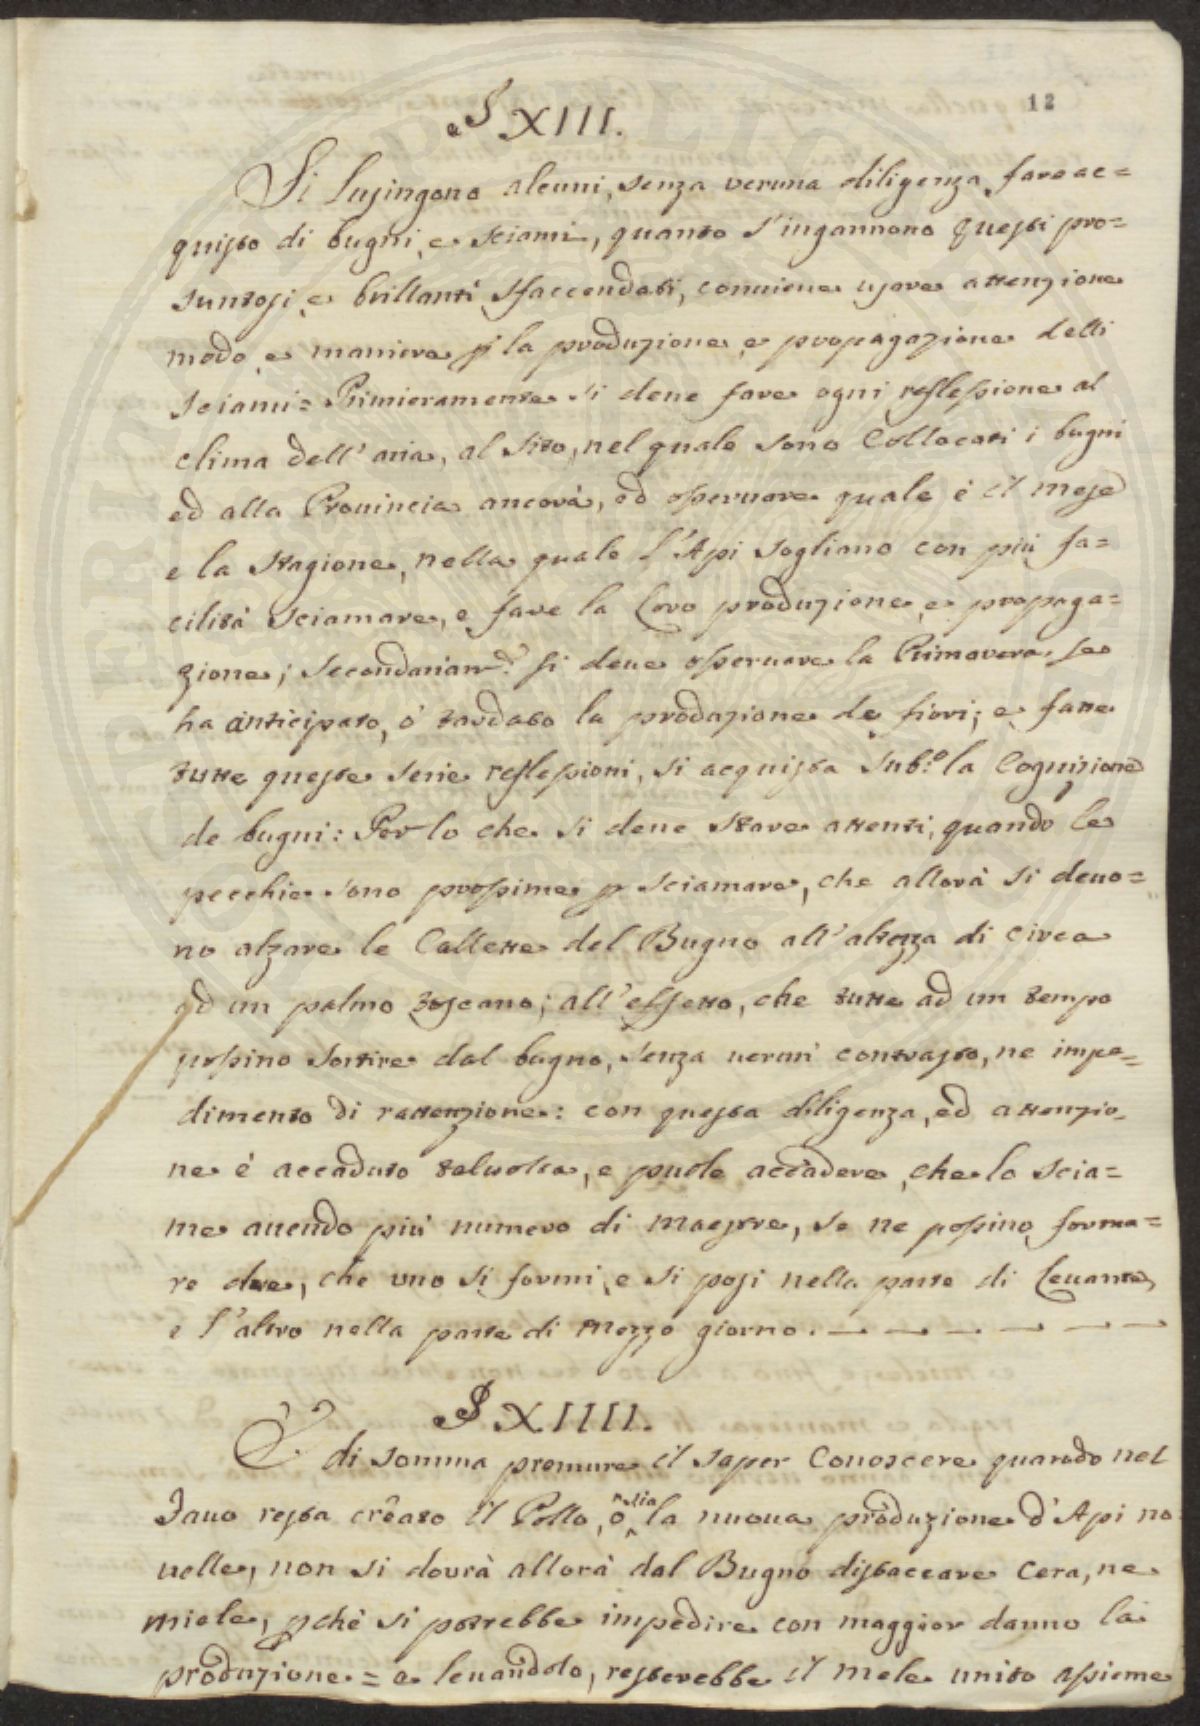 12
§ XIII.
Si lusingono alcuni, senza veruna diligenza fare ac=
quisto di bugni, e sciami, quanto s'ingannono questi pro=
suntosi, e brillanti sfaccendati, conuiene usare attenzione
modo, e maniera p la produzione, e propagazione delli
sciami= Primieramente si deue fare ogni reflessione al
clima dell'aria, al sito, nel quale sono Collocati i bugni
ed alla Prouincia ancorà, ed osseruare quale è il mese
e la stagione, nella quale l'Api sogliano con più fa=
cilità sciamare, e fare la loro produzione, e propaga=
zione; secondariam.e si deue osseruare la Primavera se
ha anticipato, ò tardato la produzione de fiori; e fatte
tutte queste serie reflessioni, si acquista sub.o la Cognizione
de bugni: Per lo che si deue stare attenti, quando le
pecchie sono prossime p sciamare, che allorà si deuo=
no alzare le Callette del Bugno all'altezza di circa
ad un palmo toscano; all'effetto, che tutte ad un tempo
possino sortire dal bugno, senza uerun contrasto, ne impe=
dimento di rattenzione: con questa diligenza, ed attenzio=
ne è accaduto taluolta, e puole accadere, che lo scia=
me auendo più numero di maestre, se ne possino forma=
re due, che uno si formi, e si posi nella parte di Leuante,
e l'altro nella parte di mezzo giorno.
§ XIIII.
È di somma premura il saper Conoscere quando nel
Fauo resta creato il Pollo, ò sia la nuoua produzione d'Api no
uelle, non si dourà allorà dal Bugno distaccare cera, ne
miele, pchè si potrebbe impedire con maggior danno la
produzione= e leuandolo, resterebbe il mele unito assieme